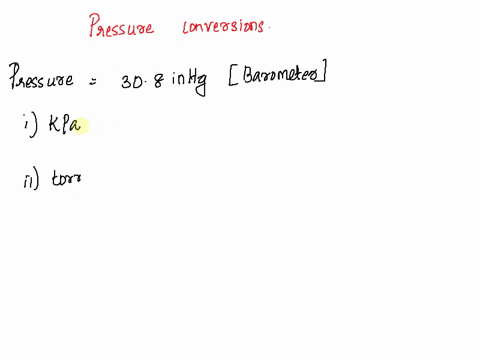 Pressure conversions.
Pressure = 30.8 inHg [Barometer]
i) KPa
ii) torr